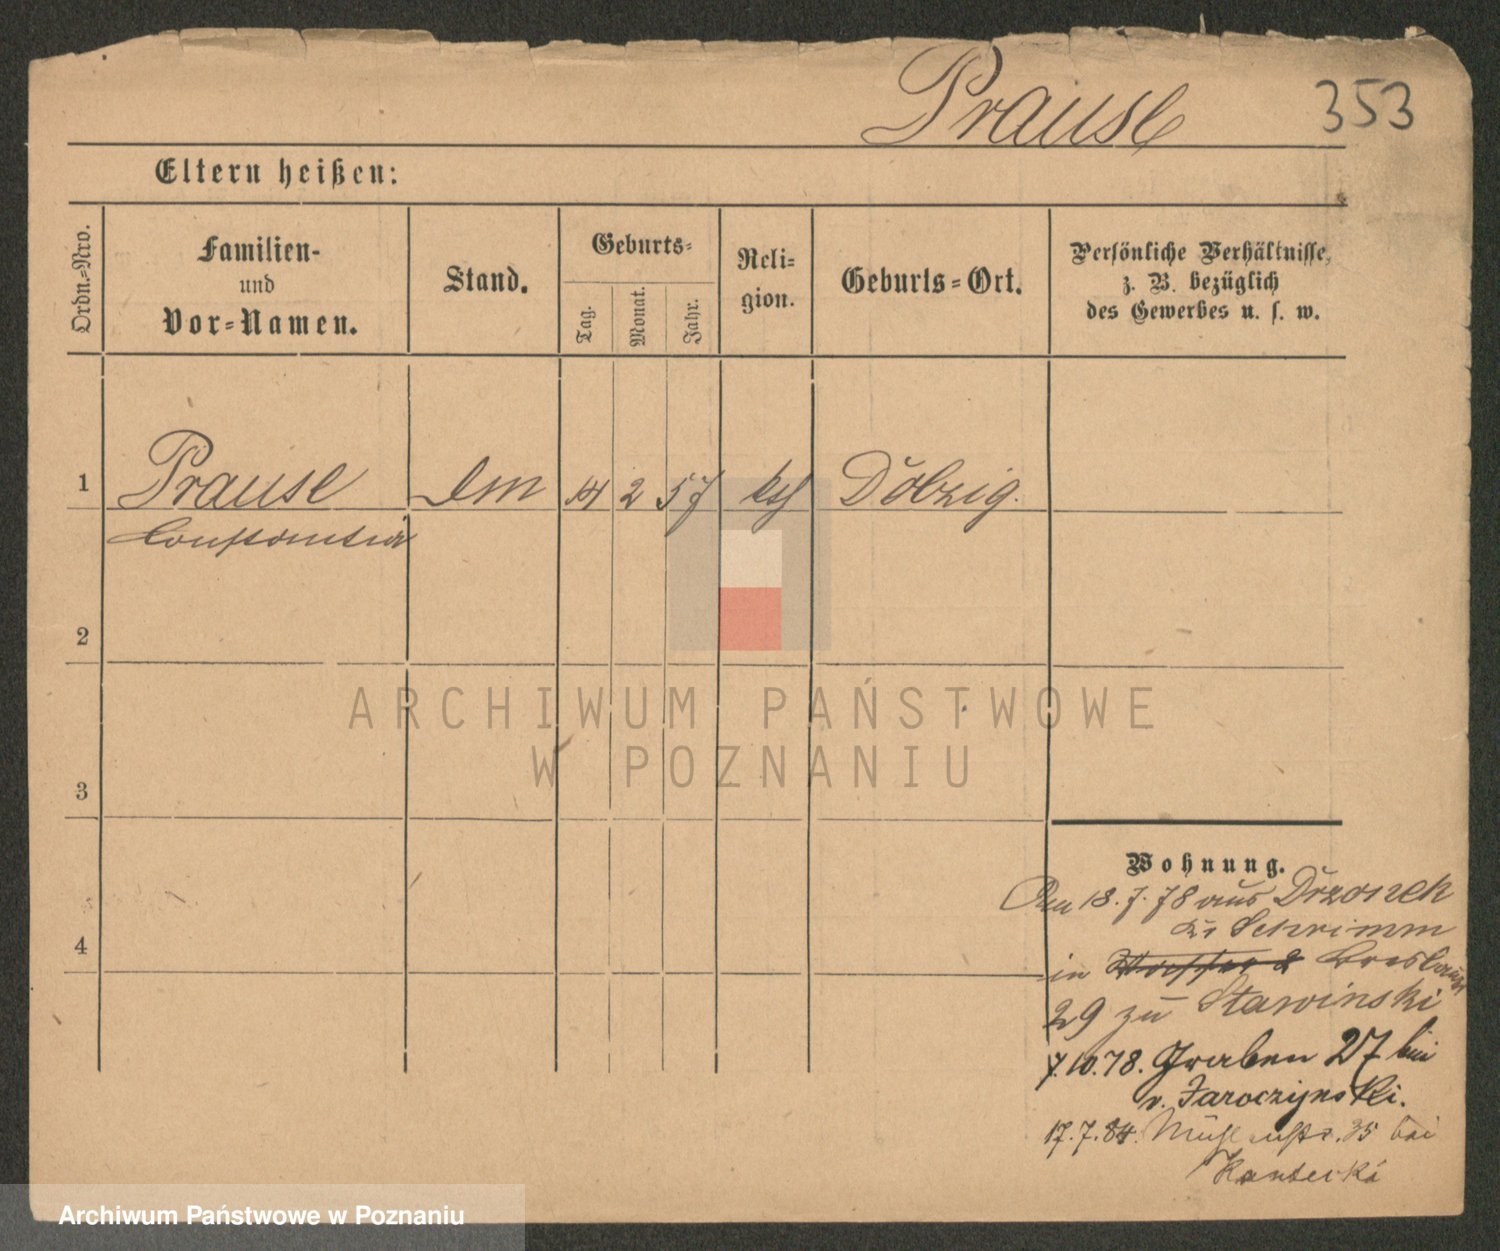 Prause 353
Eltern heißen:
Ordn.-Nro.
Familien-
und
Vor-Namen.
Stand.
Geburts-
Tag.
Monat.
Jahr.
Reli-
gion.
Geburts-Ort.
Persönliche Verhältnisse,
z. B. bezüglich
des Gewerbes u. s. w.
1 Prause 14 2 57 Dolzig.
Constantia
2
3
4
ARCHIWUM PAŃSTWOWE
W POZNANIU
Wohnung.
18.7.78 aus Drzonek
Schrimm
in Breslauer
29 zu Stawinski
7.10.78. Graben 27 bei
v. Jaroczynski.
17.7.84. Mühlenstr. 35 bei
Kantecki
Archiwum Państwowe w Poznaniu